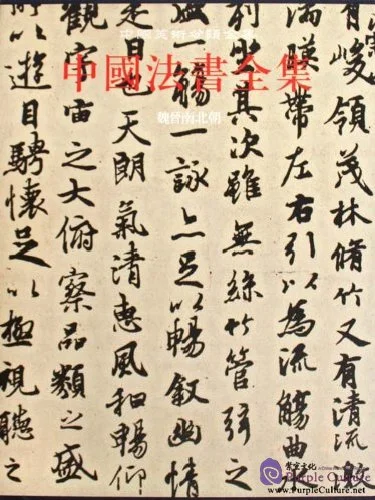 中國美術分類全集
中國法書全集
魏晉南北朝
有峻領茂林脩竹又有清流激
湍暎帶左右引以為流觴曲水
列坐其次雖無絲竹管弦之
盛一觴一詠亦足以暢敘幽情
是日也天朗氣清惠風和暢仰
觀宇宙之大俯察品類之盛
所以遊目騁懷足以極視聽之
Purple Culture
www.PurpleCulture.net